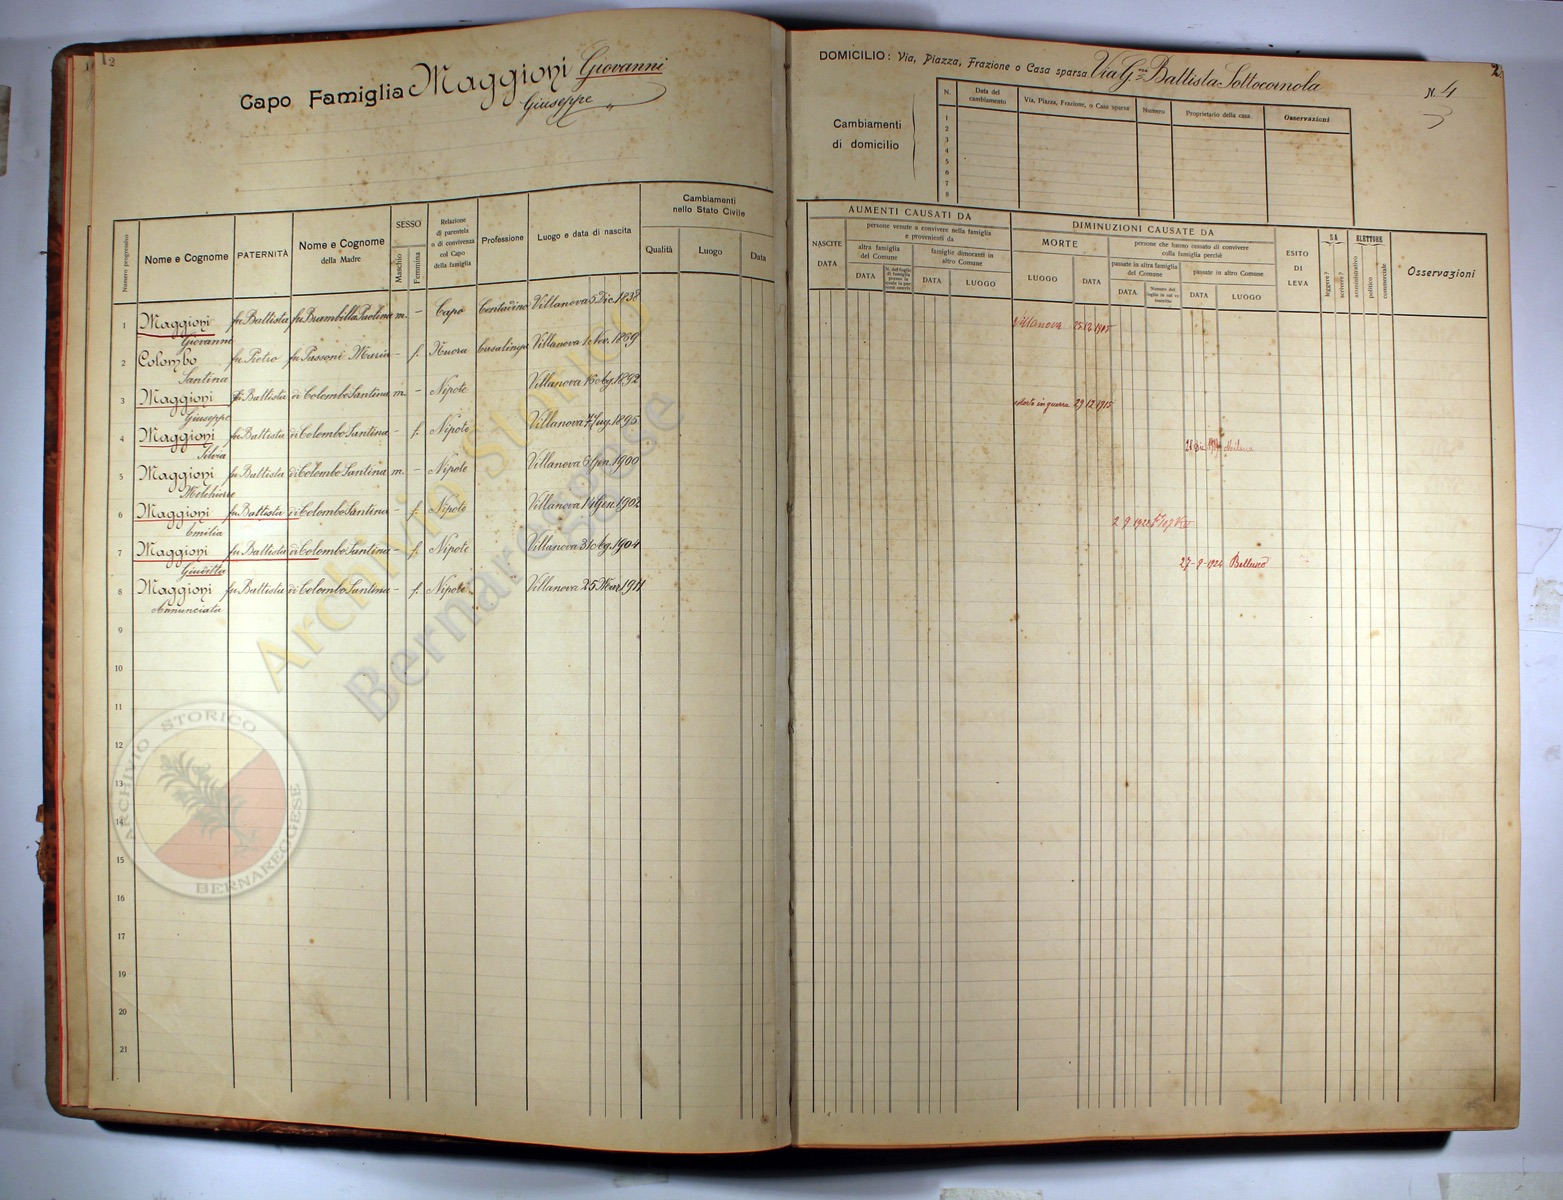 12
Capo Famiglia Maggioni Giovanni
Giuseppe "
Numero progressivo
Nome e Cognome
PATERNITÀ
Nome e Cognome
della Madre
SESSO
Maschio
Femmina
Relazione
di parentela
o di convivenza
col Capo
della famiglia
Professione
Luogo e data di nascita
Cambiamenti
nello Stato Civile
Qualità
Luogo
Data
1 Maggioni fu Battista fu Brambilla Paolina m. - Capo Contadino Villanova 5 Dic. 1838
Giovanni
2 Colombo fu Pietro fu Passoni Maria - f. Nuora Casalinga Villanova 1 Nov. 1869
Santina
3 Maggioni fu Battista di Colombo Santina m. - Nipote Villanova 16 Ag. 1892
Giuseppe
4 Maggioni fu Battista di Colombo Santina - f. Nipote Villanova 7 Lug. 1895
Silvia
5 Maggioni fu Battista di Colombo Santina m. - Nipote Villanova 6 Gen. 1900
Melchiorre
6 Maggioni fu Battista di Colombo Santina - f. Nipote Villanova 14 Gen. 1902
Emilia
7 Maggioni fu Battista di Colombo Santina - f. Nipote Villanova 31 Ag. 1904
Giuditta
8 Maggioni fu Battista di Colombo Santina - f. Nipote Villanova 25 Mar. 1911
Annunciata
9
10
11
12
13
14
15
16
17
18
19
20
21
Archivio Storico
Bernareggese
ARCHIVIO STORICO
BERNAREGGESE
2
DOMICILIO: Via, Piazza, Frazione o Casa sparsa Via G. Battista Sottocornola
N. 4
3
Cambiamenti
di domicilio
N.
Data del
cambiamento
Via, Piazza, Frazione, o Casa sparsa
Numero
Proprietario della casa
Osservazioni
1
2
3
4
5
6
7
8
AUMENTI CAUSATI DA
NASCITE
DATA
persone venute a convivere nella famiglia
e provenienti da
altra famiglia
del Comune
DATA
famiglie dimoranti in
altro Comune
DATA
LUOGO
DIMINUZIONI CAUSATE DA
MORTE
LUOGO
DATA
persone che hanno cessato di convivere
colla famiglia perchè
passate in altra famiglia
del Comune
DATA
passate in altro Comune
DATA
LUOGO
ESITO
DI
LEVA
SA
leggere?
scrivere?
ELETTORE
amministrativo
politico
commerciale
Osservazioni
Villanova 25.12.1915
Morto in guerra 29.12.1915
Milano
2.9.1922
27-9-1924 Bellusco